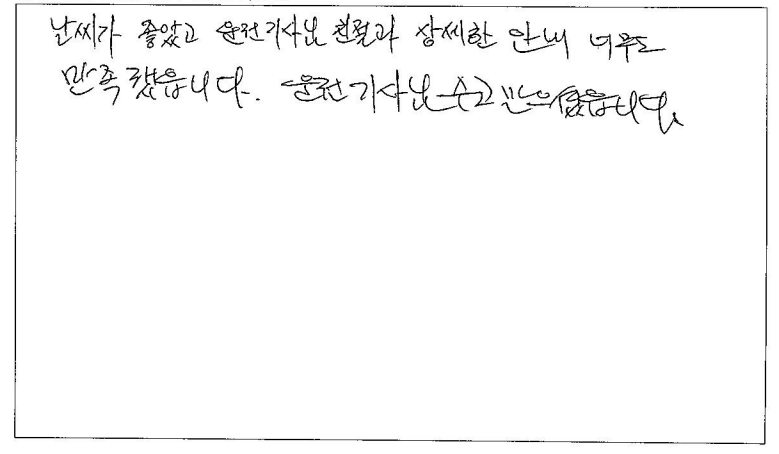 날씨가 좋았고 운전기사님 친절과 상세한 안내 너무도
만족했읍니다. 운전기사님 수고 많으셨읍니다.